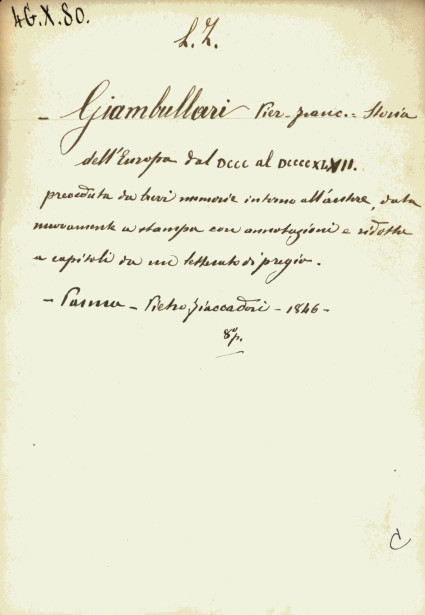 4G.X.80.
L.Z.
- Giambullari Pier-Franc.= Storia
dell'Europa dal DCCC al DCCCCXLVII.
preceduta da brevi memorie intorno all'autore, data
nuovamente a stampa con annotazioni e ridotta
a capitoli da un letterato di pregio.
- Parma - Pietro Fiaccadori - 1846 -
8º p.
C